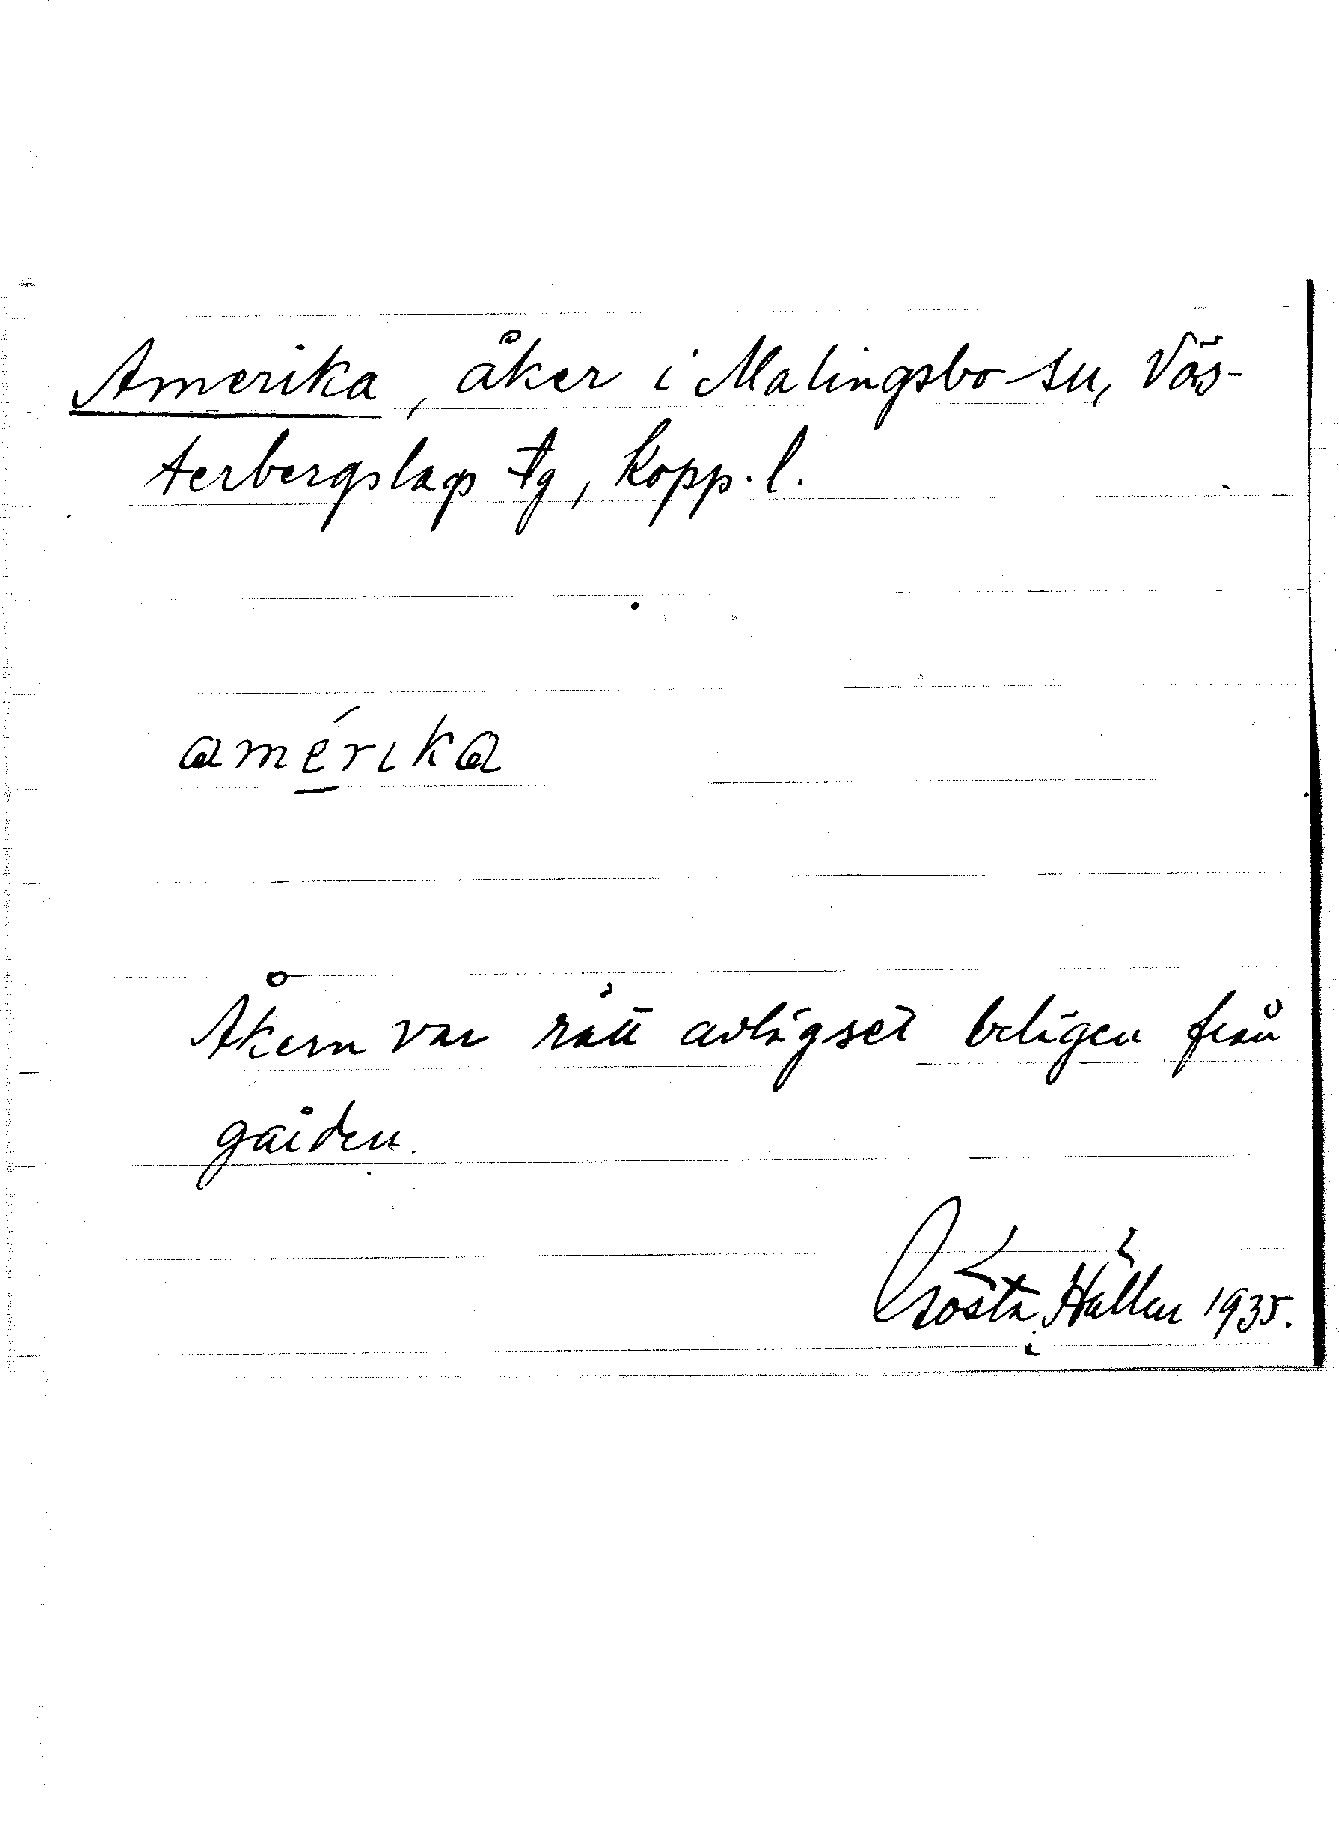 Amerika, åker i Malingsbo sn, Väs-
terbergslags tg, Kopp. l.
amérıka
Åkern var rätt avlägset belägen från
gården.
Gösta Hållen 1935.